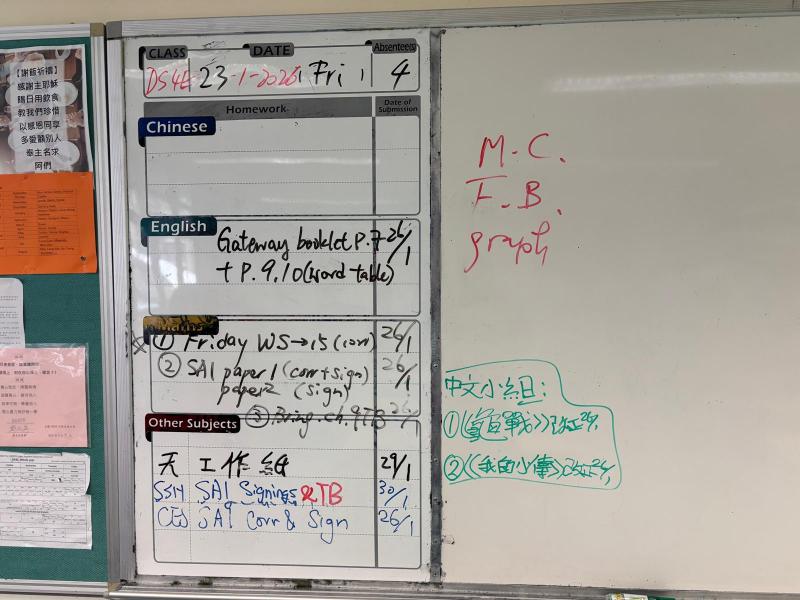 【謝飯祈禱】
感謝主耶穌
賜日用飲食
教我們珍惜
以感恩同享
多愛顧別人
奉主名求
阿們
CLASS DATE Absentees
DS4E 23-1-2026, Fri, 4
Homework Date of Submission
Chinese
English
Gateway booklet P.7 26/1
+ P.9,10 (word table)
Maths
① Friday WS→15 (corr) 26/1
② SA1 paper 1 (corr+sign) 26/1
paper 2 (sign)
③ Bring ch.9 TB
Other Subjects
天 工作紙 29/1
SSN SA1 Signings & TB 30/1
CES SA1 Corr & Sign 26/1
M.C.
F.B.
graph
中文小組:
①
②《我的小傳》改正